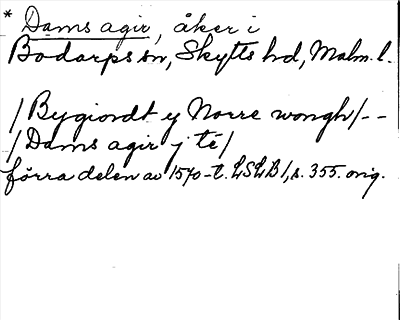 * Dams agir, åker i
Bodarps sn, Skytts hd, Malm. l.
/Bygiordt ej Norre wongh/--
/Dams agir j té/
förra delen av 1570-t. LSLB 1, s. 355. orig.